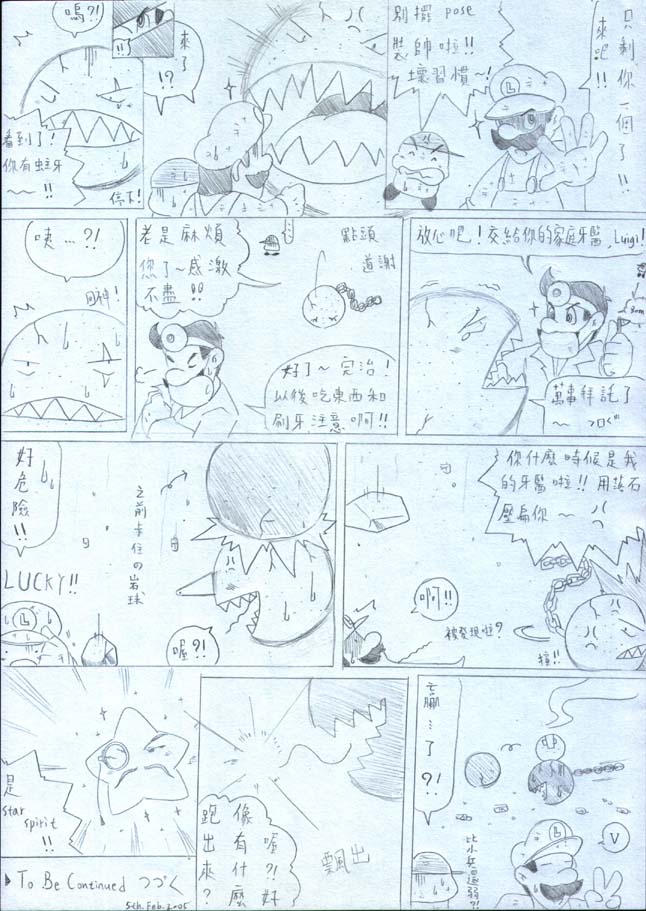 只剩你一個了!!
來吧!!
別擺 pose
裝帥啦!!
壞習慣~!
來了
!?
嗚?!
看到了!
你有蛀牙
~~!!
停下!
放心吧!交給你的家庭牙醫, Luigi!
萬事拜託了
點頭
道謝
老是麻煩
您了~感激
不盡!!
好了~完治!
以後吃東西和
刷牙注意啊!!
咦…?!
回神!
你什麼時候是我
的牙醫啦!!用落石
壓扁你~
啊!!
被發現啦?
撞!!
之前卡住の岩球
喔?!
好危險!!
LUCKY!!
L
贏…了?!
比小兵還弱?!
V
L
喔?!好
像有什麼
跑出來?
飄出
是
star
spirit
!!
To Be Continued つづく
5ch.Feb.2005